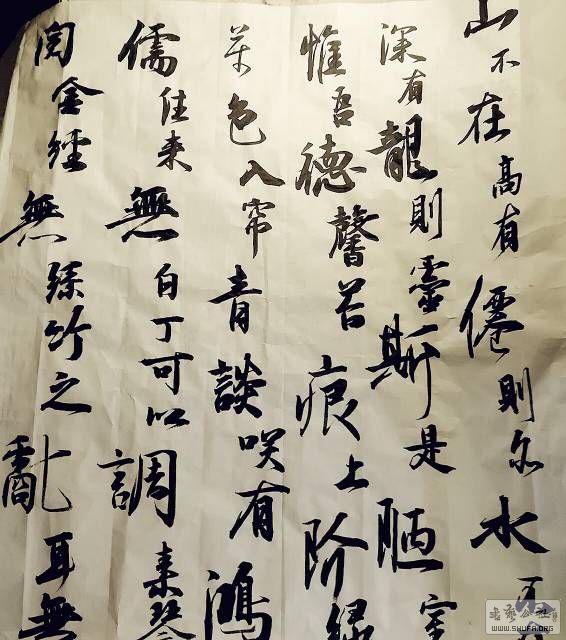 山不在高有僊則名水不
深有龍則靈斯是陋室
惟吾德馨苔痕上阶緑
草色入帘青談咲有鴻
儒往来無白丁可以調素琴
閲金經無絲竹之亂耳無
书艺公社
WWW.SHUFA.ORG